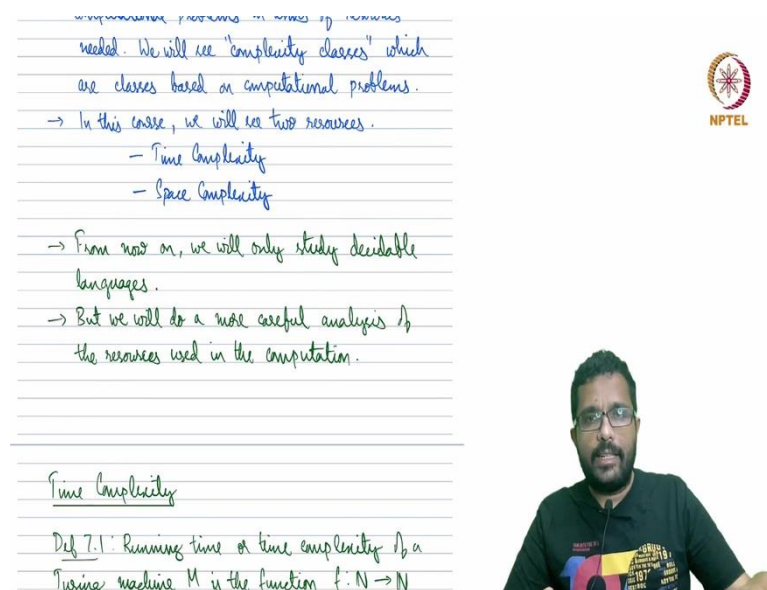 computational problems in terms of resources
needed. We will see "complexity classes" which
are classes based on computational problems.
→ In this course, we will see two resources.
– Time Complexity
– Space Complexity
→ From now on, we will only study decidable
languages.
→ But we will do a more careful analysis of
the resources used in the computation.
Time Complexity
Def 7.1: Running time or time complexity of a
Turing machine M is the function f: N → N
NPTEL